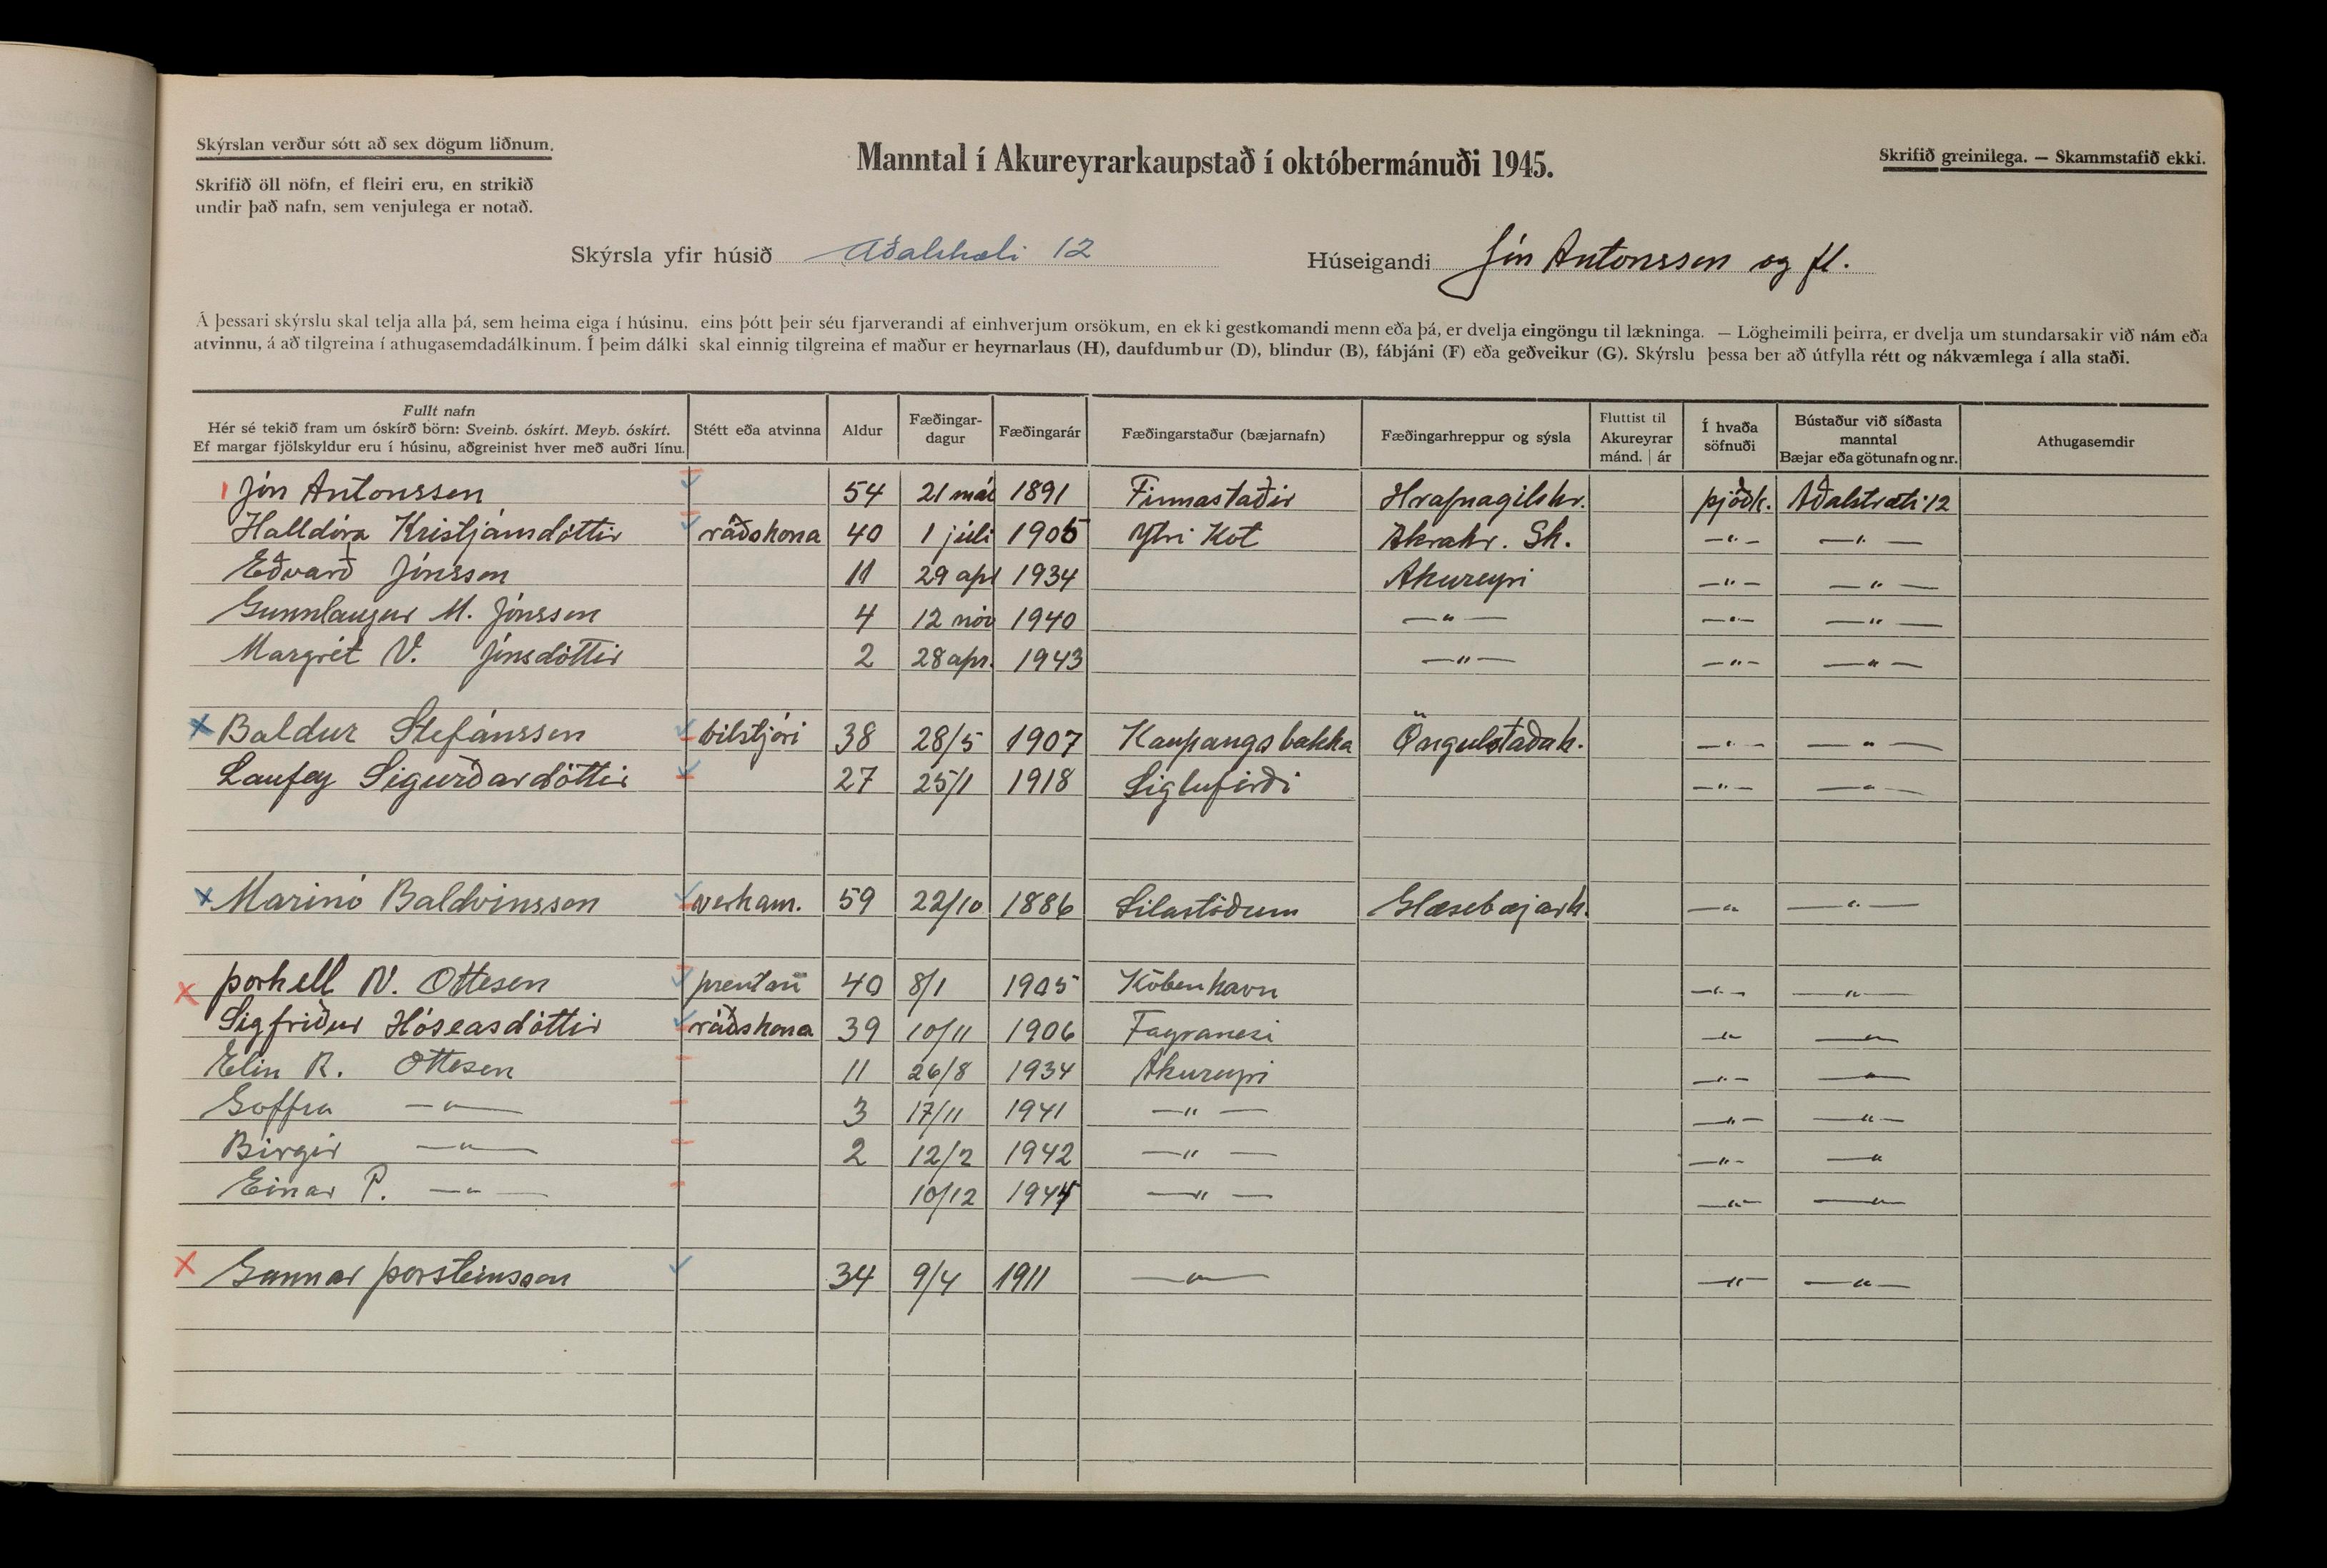 Skýrslan verður sótt að sex dögum liðnum.
Skrifið öll nöfn, ef fleiri eru, en strikið
undir það nafn, sem venjulega er notað.
Manntal í Akureyrarkaupstað í októbermánuði 1945.
Skrifið greinilega. — Skammstafið ekki.
Skýrsla yfir húsið Aðalstræti 12 Húseigandi Jón Antonsson og fl.
Á þessari skýrslu skal telja alla þá, sem heima eiga í húsinu, eins þótt þeir séu fjarverandi af einhverjum orsökum, en ekki gestkomandi menn eða þá, er dvelja eingöngu til lækninga. — Lögheimili þeirra, er dvelja um stundarsakir við nám eða
atvinnu, á að tilgreina í athugasemdadálkinum. Í þeim dálki skal einnig tilgreina ef maður er heyrnarlaus (H), daufdumbur (D), blindur (B), fábjáni (F) eða geðveikur (G). Skýrslu þessa ber að útfylla rétt og nákvæmlega í alla staði.
Fullt nafn
Hér sé tekið fram um óskírð börn: Sveinb. óskírt. Meyb. óskírt.
Ef margar fjölskyldur eru í húsinu, aðgreinist hver með auðri línu.
Stétt eða atvinna
Aldur
Fæðingar-
dagur
Fæðingarár
Fæðingarstaður (bæjarnafn)
Fæðingarhreppur og sýsla
Fluttist til
Akureyrar
mánd. | ár
Í hvaða
söfnuði
Bústaður við síðasta
manntal
Bæjar eða götunafn og nr.
Athugasemdir
Jón Antonsson 54 21 maí 1891 Finnastaðir Hrafnagilshr. þjóðk. Aðalstræti 12
Halldóra Kristjánsdóttir ráðskona 40 1 júli 1905 Ytri Kot Akrahr. Sk. —"— —"—
Eðvarð Jónsson 11 29 apl 1934 Akureyri —"— —"—
Gunnlaugur M. Jónsson 4 12 nóv 1940 —"— —"— —"—
Margrét V. Jónsdóttir 2 28 apr. 1943 —"— —"— —"—
x Baldur Stefánsson bilstjóri 38 28/5 1907 Kaupangsbakka Öngulstaðah. —"— —"—
Laufey Sigurðardóttir 27 25/1 1918 Siglufirði —"— —"—
x Marinó Baldvinsson verkam. 59 22/10 1886 Silastöðum Glæsebæjarh. —"— —"—
x Þorkell V. Ottesen prentari 40 8/1 1905 Köbenhavn —"— —"—
Sigfriður Hóseasdóttir ráðskona 39 10/11 1906 Fagranesi —"— —"—
Elin R. Ottesen 11 26/8 1934 Akureyri —"— —"—
Soffia —"— 3 17/11 1941 —"— —"— —"—
Birgir —"— 2 12/2 1942 —"— —"— —"—
Einar P. —"— 10/12 1944 —"— —"— —"—
x Gunnar Þorsteinsson 34 9/4 1911 —"— —"— —"—